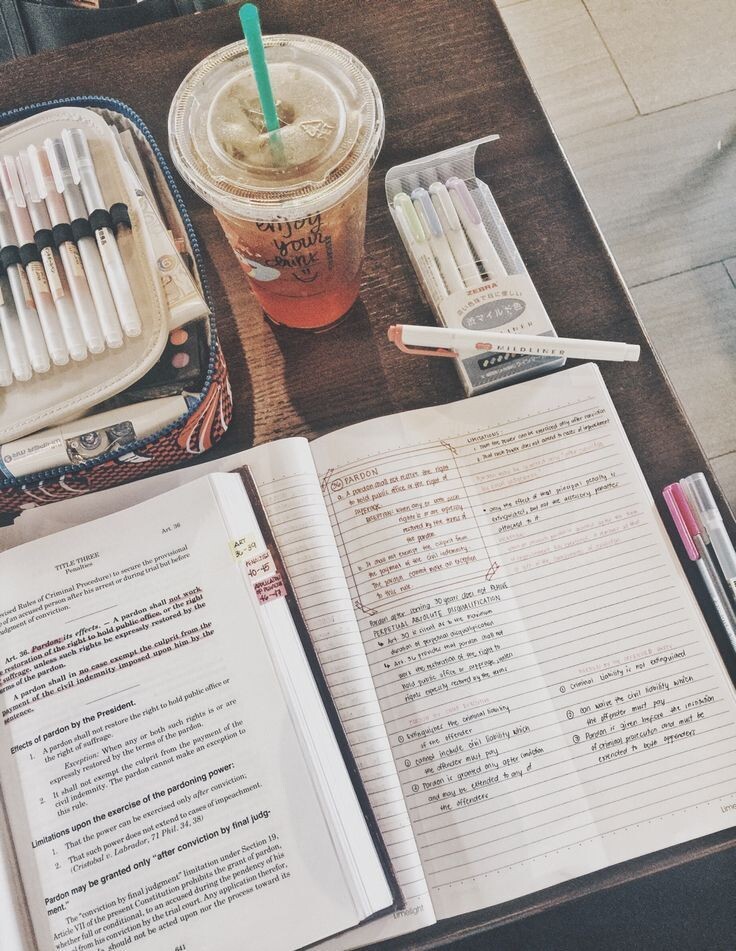 enjoy
your
drink
ZEBRA
MILDLINER
Art. 36
TITLE THREE
Penalties
vised Rules of Criminal Procedure) to secure the provisional
of an accused person after his arrest or during trial but before
judgment of conviction.
Art. 36. Pardon; its effects. – A pardon shall not work
the restoration of the right to hold public office, or the right
of suffrage, unless such rights be expressly restored by the
terms of the pardon.
A pardon shall in no case exempt the culprit from the
payment of the civil indemnity imposed upon him by the
sentence.
Effects of pardon by the President.
1. A pardon shall not restore the right to hold public office or
the right of suffrage.
Exception: When any or both such rights is or are
expressly restored by the terms of the pardon.
2. It shall not exempt the culprit from the payment of the
civil indemnity. The pardon cannot make an exception to
this rule.
Limitations upon the exercise of the pardoning power:
1. That the power can be exercised only after conviction;
2. That such power does not extend to cases of impeachment.
(Cristobal v. Labrador, 71 Phil. 34, 38)
Pardon may be granted only "after conviction by final judg-
ment."
The "conviction by final judgment" limitation under Section 19,
Article VII of the present Constitution prohibits the grant of pardon,
whether full or conditional, to an accused during the pendency of his
from his conviction by the trial court. Any application therefor,
should not be acted upon nor the process toward its
641
ART
36-39
40-45
46-47
36 PARDON
a. A pardon shall not restore the right
to hold public office or the right of
suffrage.
EXCEPTION: When any or both such
rights is or are expressly
restored by the terms of
the pardon.
b. It shall not exempt the culprit from
the payment of the civil indemnity.
The pardon cannot make an exception
to this rule.
Pardon after serving 30 years does not REMOVE
PERPETUAL ABSOLUTE DISQUALIFICATION
↳ Art. 30 is silent as to the maximum
duration of perpetual disqualification
↳ Art. 36 provides that pardon shall not
work the restoration of the right to
hold public office or suffrage, unless
rights expressly restored by the terms
① Extinguishes the criminal liability
of the offender
② Cannot include civil liability which
the offender must pay
③ Pardon is granted only after conviction
and may be extended to any of
the offenders
limelight
LIMITATIONS
1. That the power can be exercised only after conviction
2. That such power does not extend to cases of impeachment
• only the effect of that principal penalty is
extinguished, but not the accessory penalties
attached to it
① Criminal liability is not extinguished
② Can waive the civil liability which
the offender must pay
③ Pardon is given before the institution
of criminal prosecution and must be
extended to both offenders